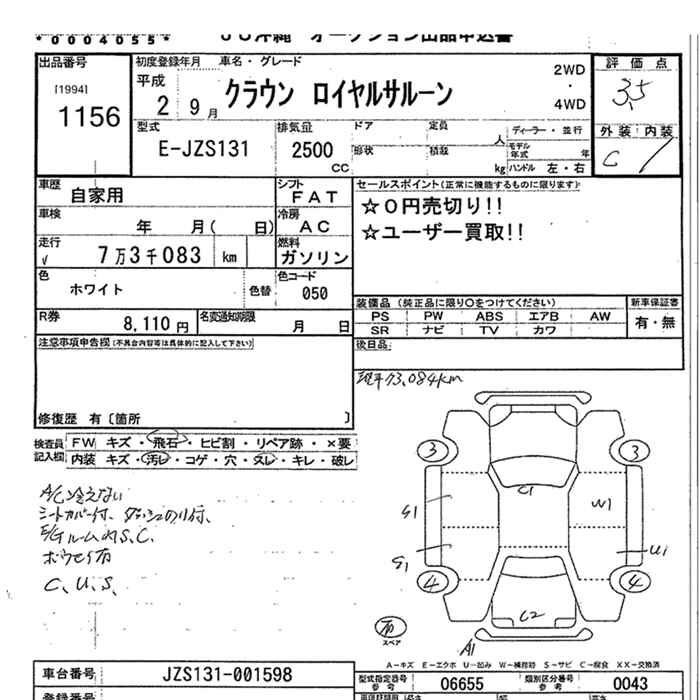 *0004055*
JU沖縄 オークション出品申込書
出品番号
[1994]
1156
初度登録年月
平成
2 9月
車名・グレード
クラウン ロイヤルサルーン
2WD
・
4WD
評価点
3.5
外装 内装
C
型式
E-JZS131
排気量
2500
CC
ドア
定員
人
形状
積載
kg
ディーラー・並行
モデル年式 年
ハンドル 左・右
車歴
自家用
シフト
FAT
車検
年 月( 日)
冷房
AC
走行
√ 7万3千083 km
燃料
ガソリン
色
ホワイト
色替
色コード
050
R券
8,110円
名変通知期限
月 日
セールスポイント(正常に機能するものに限ります)
☆0円売切り!!
☆ユーザー買取!!
装備品 (純正品に限り○をつけてください)
PS PW ABS エアB AW
SR ナビ TV カワ
新車保証書
有・無
後日品:
注意事項申告欄(不具合内容等は具体的に記入して下さい)
修復歴 有〔箇所 〕
現車73,084km
検査員記入欄
FW キズ・飛石・ヒビ割・リペア跡・×要
内装 キズ・汚レ・コゲ・穴・スレ・キレ・破レ
A/C冷えない
シートカバー付、ダッシュのり付、
E/Gルーム内S.C.
C、U、S、
3 3
C1
S1
W1
S1
U1
4 4
C2
A1
スペア
A-キズ E-エクボ U-凹み W-補修跡 S-サビ C-腐食 XX-交換済
車台番号
JZS131-001598
型式指定番号
06655
類別区分番号
0043
参考
登録番号